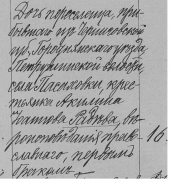 Дочь переселенца, при-
бывшаго изъ Черниговской
губ., Городнянскаго уѣзда,
Петрушинской волости,
села Пасѣковки, крес-
тьянка Акилина
Радова, вѣ-
роисповѣданія право- 16.
славнаго, первымъ
бракомъ